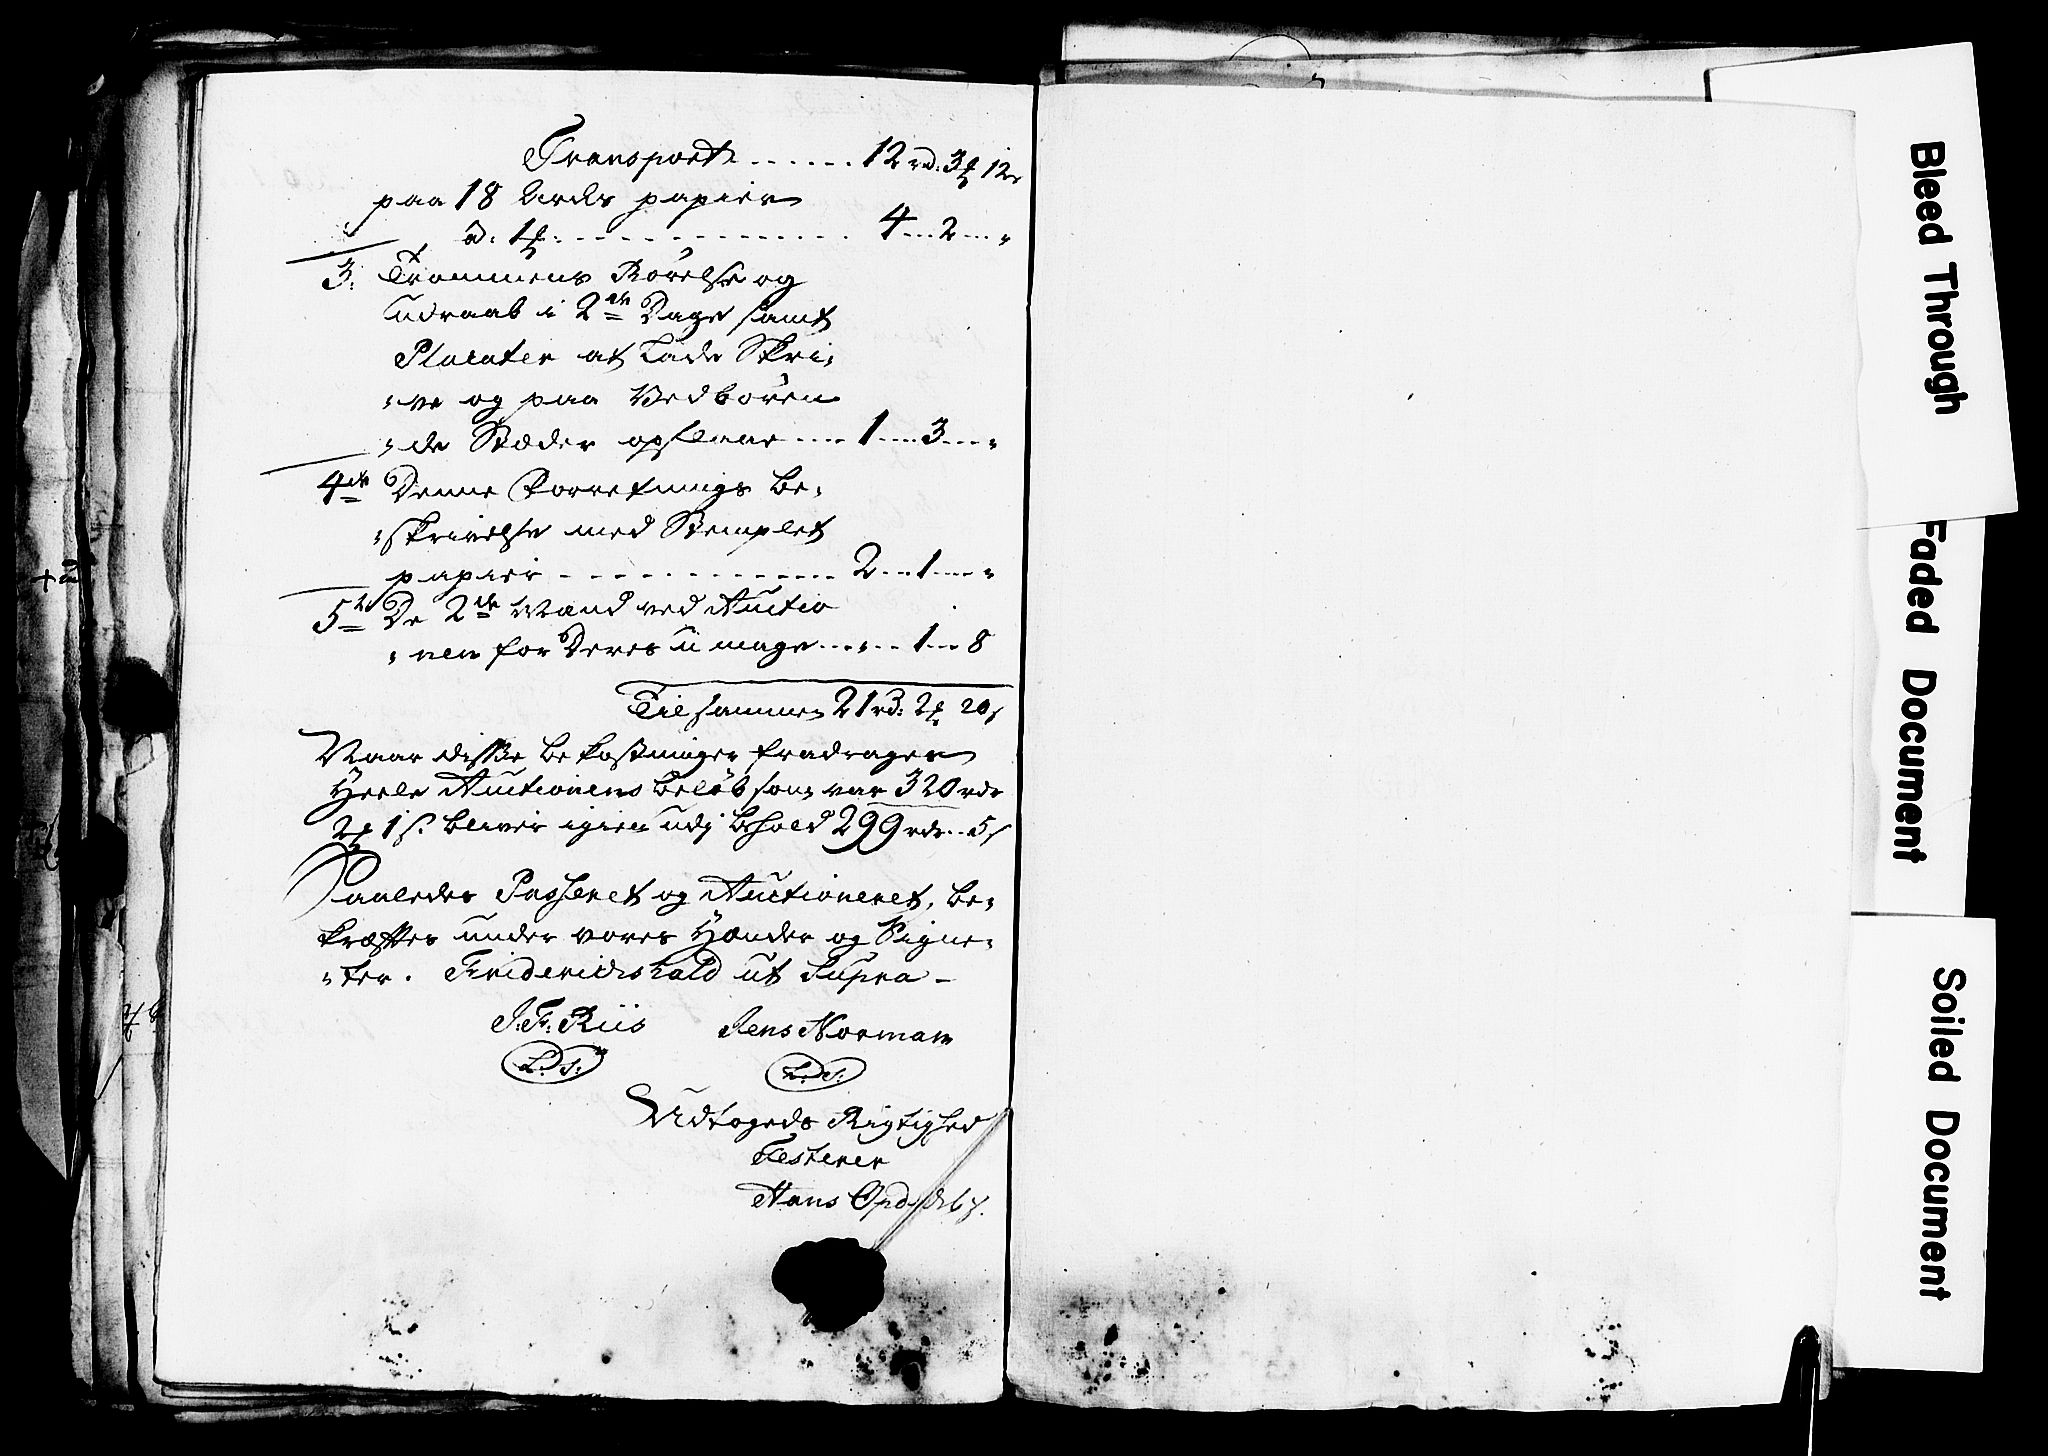 Transport ...... 12 rd. 3 ℳ 12 s
paa 18 Arcks papier
à: 1 ℳ: ............. 4 .... 2 .... "
3. Trommens Rørelse og
udraab i 2de Dage samt
Placater at lade Skri-
-ve og paa Vedbøren-
-de Stæder opslaae .... 1 .... 3 .... "
4de Denne Forretnings be-
-skrivelse med Stemplet
papier ............. 2 .... 1 .... "
5te De 2de Mænd ved Auctio
-nen for Deres umage ..."... 1 ... 8
Tilsammen 21 rd: 2 ℳ 20 s
Naar disse bekostninger fradragen
Heele Auctionens beløb som var 320 rdr
2 ℳ 1 s. bliver igien udj behold 299 rdr .. 5 s
Saaledes Passeret og Auctioneret, be-
kræfter under vores Hænder og Signe-
-ter. Friderichshald ut Supra -
J: Fr: Riis Jens Norman
L. S. L. S.
Udtogeds Rigtighed
Testerer
Hans
Bleed Through
Faded Document
Soiled Document